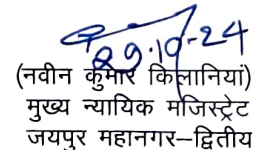 29.10-24
(नवीन कुमार किलानियां)
मुख्य न्यायिक मजिस्ट्रेट
जयपुर महानगर–द्वितीय